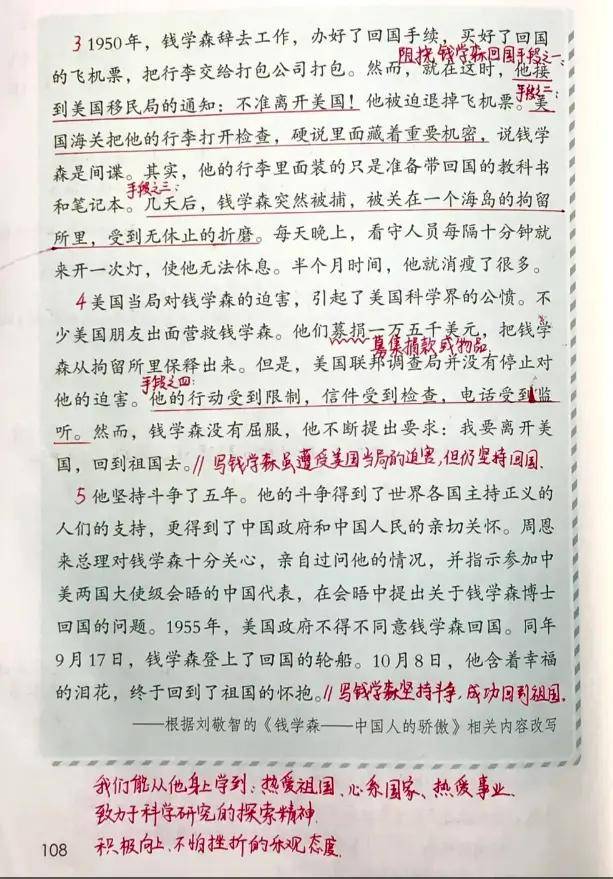 3 1950年，钱学森辞去工作，办好了回国手续，买好了回国
阻挠钱学森回国手段之一：
的飞机票，把行李交给打包公司打包。然而，就在这时，他接
手段之二：
到美国移民局的通知：不准离开美国！他被迫退掉飞机票。美
国海关把他的行李打开检查，硬说里面藏着重要机密，说钱学
森是间谍。其实，他的行李里面装的只是准备带回国的教科书
手段之三：
和笔记本。几天后，钱学森突然被捕，被关在一个海岛的拘留
所里，受到无休止的折磨。每天晚上，看守人员每隔十分钟就
来开一次灯，使他无法休息。半个月时间，他就消瘦了很多。
4 美国当局对钱学森的迫害，引起了美国科学界的公愤。不
少美国朋友出面营救钱学森。他们募捐一万五千美元，把钱学
募集捐款或物品
森从拘留所里保释出来。但是，美国联邦调查局并没有停止对
手段之四：
他的迫害。他的行动受到限制，信件受到检查，电话受到监
听。然而，钱学森没有屈服，他不断提出要求：我要离开美
国，回到祖国去。//写钱学森虽遭受美国当局的迫害，但仍坚持回国.
5 他坚持斗争了五年。他的斗争得到了世界各国主持正义的
人们的支持，更得到了中国政府和中国人民的亲切关怀。周恩
来总理对钱学森十分关心，亲自过问他的情况，并指示参加中
美两国大使级会晤的中国代表，在会晤中提出关于钱学森博士
回国的问题。1955年，美国政府不得不同意钱学森回国。同年
9月17日，钱学森登上了回国的轮船。10月8日，他含着幸福
的泪花，终于回到了祖国的怀抱。//写钱学森坚持斗争，成功回到祖国.
——根据刘敬智的《钱学森——中国人的骄傲》相关内容改写
我们能从他身上学到：热爱祖国、心系国家、热爱事业、
致力于科学研究的探索精神.
积极向上、不怕挫折的乐观态度.
108